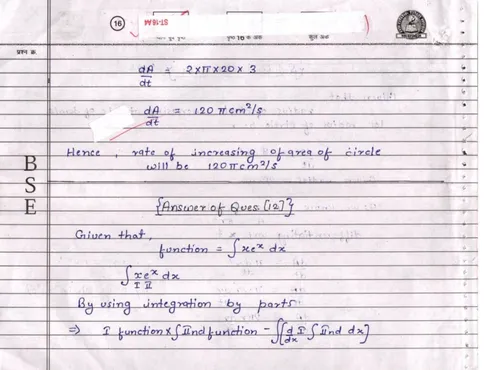 16
प्रश्न क्र.
पृष्ठ 16 के अंक
कुल अंक
dA/dt = 2×π×20×3
dA/dt = 120 π cm²/s
Hence, rate of increasing of area of circle
will be 120π cm²/s
B
S
E
{Answer of Ques. [12]}
Given that,
function = ∫xeˣ dx
∫xeˣ dx
I II
By using integration by parts
⇒ I function × ∫IInd function − ∫[d/dx I ∫IInd dx]